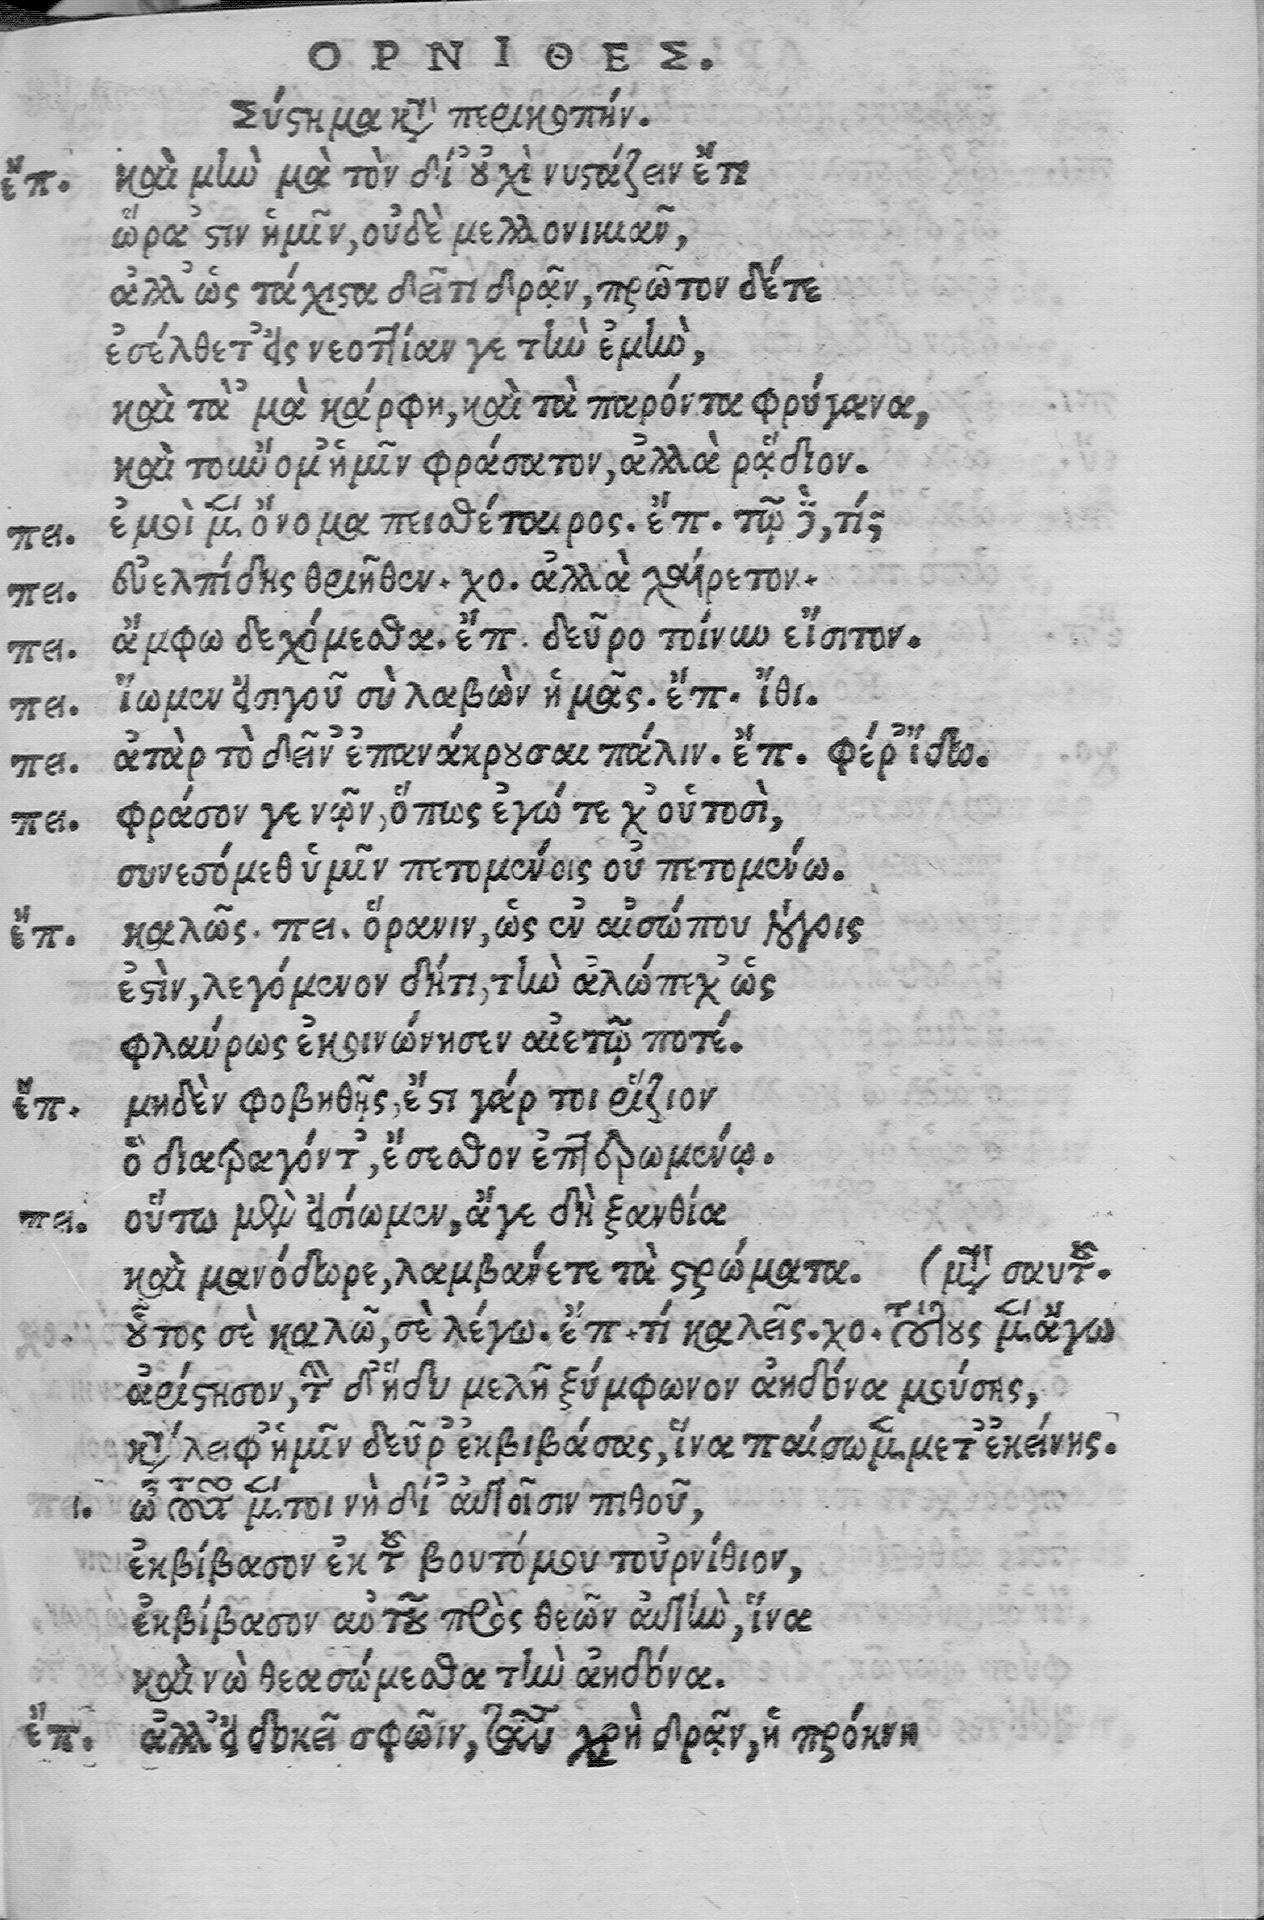 ΟΡΝΙΘΕΣ.
Σύστημα κατὰ περικοπήν.
ἔπ. καὶ μὴν μὰ τὸν δί' οὐχὶ νυστάζειν ἔτι
ὥρα 'στιν ἡμῖν, οὐδὲ μελλονικιᾶν,
ἀλλ' ὡς τάχιστα δεῖ τι δρᾶν, πρῶτον δέ τε
εἰσέλθετ' εἰς νεοττίαν γε τὴν ἐμὴν,
καὶ τὰ 'μὰ κάρφη, καὶ τὰ παρόντα φρύγανα,
καὶ τοὔνομ' ἡμῖν φράσατον, ἀλλὰ ῥᾴδιον.
πει. ἐμοὶ μὲν ὄνομα πεισθέταιρος. ἔπ. τῷ δὲ, τί;
πει. εὐελπίδης θριῆθεν. χο. ἀλλὰ χαίρετον.
πει. ἄμφω δεχόμεσθα. ἔπ. δεῦρο τοίνυν εἴσιτον.
πει. ἴωμεν εἰσιγοῦ σὺ λαβὼν ἡμᾶς. ἔπ. ἴθι.
πει. ἀτὰρ τὸ δεῖν' ἐπανάκρουσαι πάλιν. ἔπ. φέρ' ἴδω.
πει. φράσον γε νῷν, ὅπως ἐγώ τε χ' οὑτοσὶ,
συνεσόμεθ ὑμῖν πετομένοις οὐ πετομένω.
ἔπ. καλῶς. πει. ὅρα νιν, ὡς ἐν αἰσώπου λόγοις
ἐστὶν, λεγόμενον δή τι, τὴν ἀλώπεχ' ὡς
φλαύρως ἐκοινώνησεν αἰετῷ ποτέ.
ἔπ. μηδὲν φοβηθῇς, ἔστι γάρ τοι ῥίζιον
ὃ διαφαγόντ', ἔσεσθον ἐπτερωμένω.
πει. οὕτω μὲν εἰσίωμεν, ἄγε δὴ ξανθία
καὶ μανόδωρε, λαμβάνετε τὰ στρώματα. (μετὰ σαυτοῦ.
οὗτος σὲ καλῶ, σὲ λέγω. ἔπ. τί καλεῖς. χο. τούτους μὲν ἄγων
ἀρίστησον, τὴν δ' ἡδυμελῆ ξύμφωνον ἀηδόνα μούσης,
κατάλειφ' ἡμῖν δεῦρ' ἐκβιβάσας, ἵνα παίσωμεν μετ' ἐκείνης.
ι. ὦ τοῦτο μέντοι νὴ δί' αὐτοῖσιν πιθοῦ,
ἐκβίβασον ἐκ τοῦ βουτόμου τοὐρνίθιον,
ἐκβίβασον αὐτοῦ πρὸς θεῶν αὐτὴν, ἵνα
καὶ νὼ θεασώμεσθα τὴν ἀηδόνα.
ἔπ. ἀλλ' εἰ δοκεῖ σφῶιν, ταῦτα χρὴ δρᾶν, ἡ πρόκνη